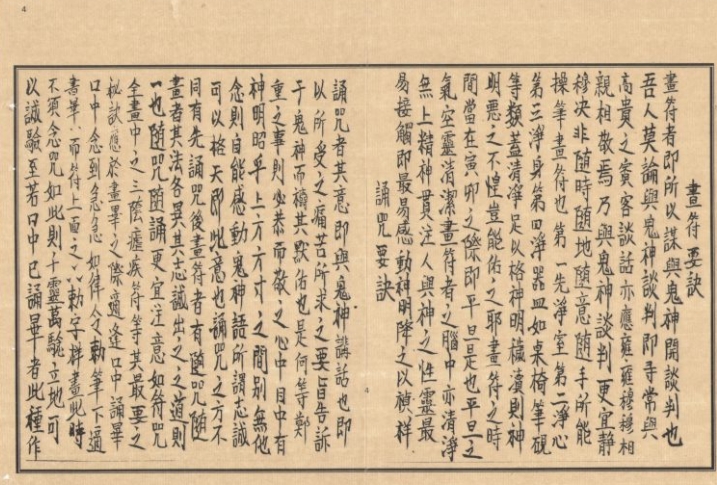 4
畫符要訣
畫符者即所以謀與鬼神開談判也
吾人莫論與鬼神談判即寻常與
高貴之賓客談話亦應雍雍穆穆相
親相敬焉乃與鬼神談判更宜静
穆決非隨時隨地隨意隨手所能
操筆畫符也第一先淨室第二淨心
第三淨身第四淨器皿如桌椅筆硯
等類蓋清淨足以格神明穢瀆則神
明惡之不惶豈能佑之耶畫符之時
間當在寅卯之際即平旦是也平旦之
氣空靈清潔畫符者之腦中亦清淨
無上精神貫注人與神之性靈最
易接觸即最易感動神明降之以禎祥
誦咒要訣
誦咒者其意即與鬼神講話也即
以所受之痛苦所求之要旨告訴
于鬼神而禱其默佑也是何等鄭
重之事則必恭而敬之心中目中有
神明昭乎上方方寸之間别無他
念則自能感動鬼神語所謂志誠
可以格天即此意也誦咒之方不
同有先誦咒後畫符者有隨咒隨
畫者其法各異其志識出之之道則
一也隨咒隨誦更宜注意如符咒
全畫中之三陰瘧疾符等其最要之
秘訣應於畫畢之際適逢口中誦畢
口中念到急急如律令勅筆下適
書畢而符上面之勅字样畫此時
不須念咒如此則十靈萬驗立地可
以誠驗至若口中已誦畢者此種作